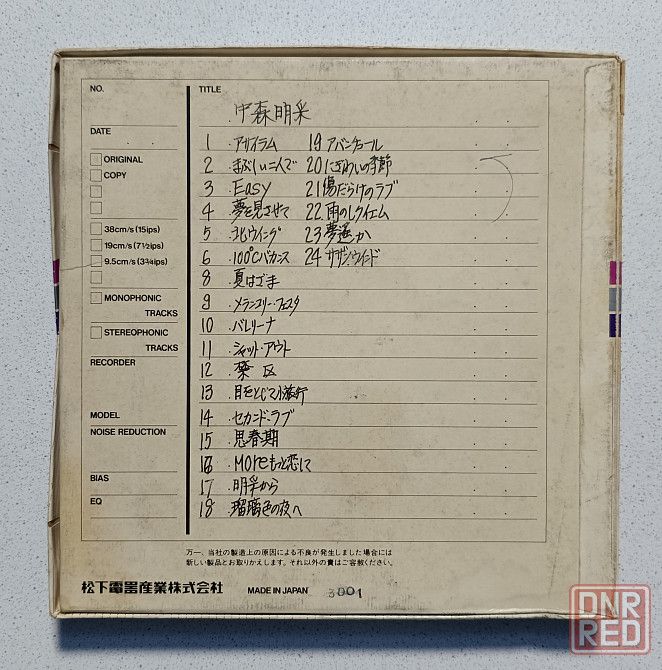 NO.
TITLE
中森明采
DATE
ORIGINAL
COPY
38cm/s (15ips)
19cm/s (7½ips)
9.5cm/s (3¾ips)
MONOPHONIC
TRACKS
STEREOPHONIC
TRACKS
RECORDER
MODEL
NOISE REDUCTION
BIAS
EQ
1 アサイラム 19 アバンチュール
2 まぶしい二人で 20 にぎわいの季節
3 Easy 21 傷だらけのラブ
4 夢を見させて 22 雨のレクイエム
5 北ウイング 23 夢遥か
6 100℃バカンス 24 サザン・ウインド
8 夏はざま
9 メランコリー・フェスタ
10 バレリーナ
11 シャット・アウト
12 禁区
13 目をとじて小旅行
14 セカンド・ラブ
15 思春期
16 Moreもっと恋に
17 明采から
18 瑠璃色の夜へ
万一、当社の製造上の原因による不良が発生しました場合には
新しい製品とお取りかえします。それ以外の責はご容赦ください。
松下電器産業株式会社 MADE IN JAPAN 3001
DNR
RED